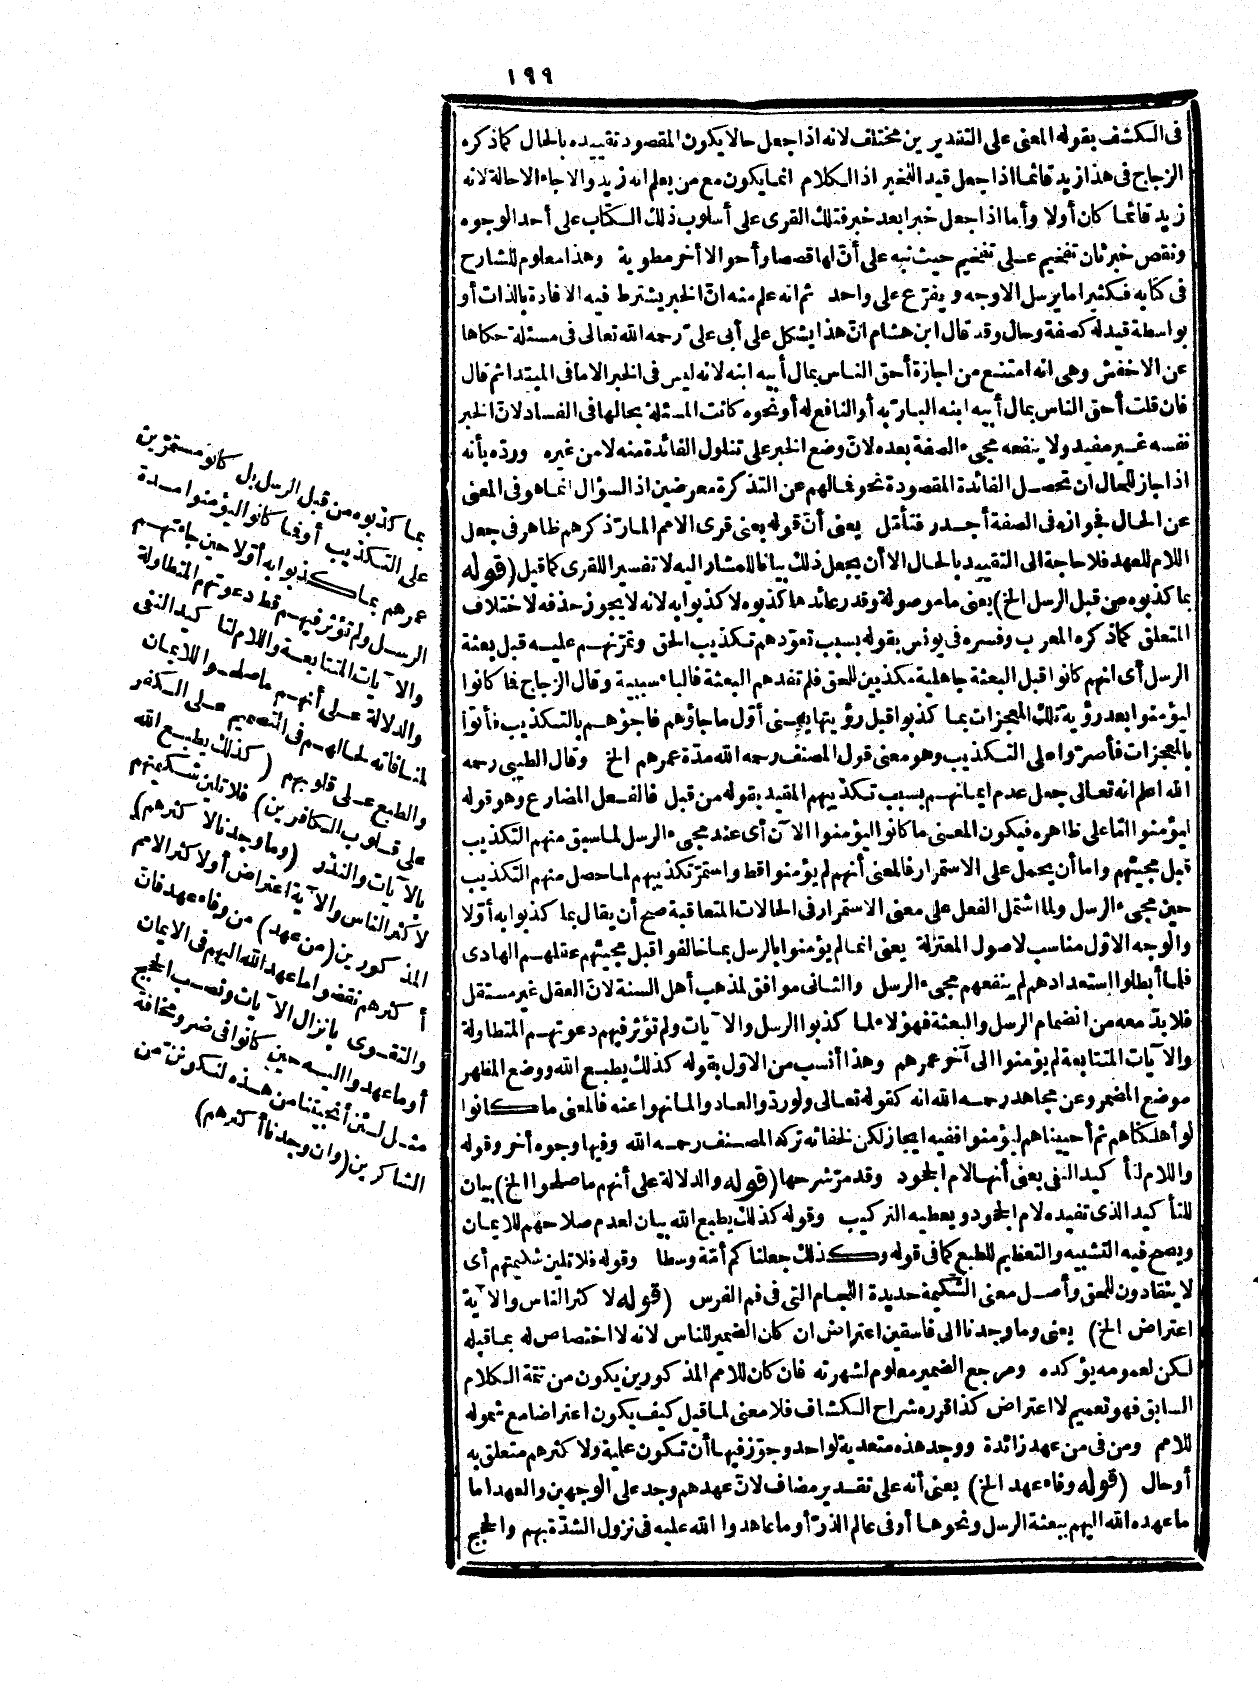 ١٩٩
فى الكشف بقوله المعنى على التقديرين مختلف لانه اذا جعل حالا يكون المقصود تقييده بالحال كما ذكره
الزجاج فى هذا زيد قائما اذا جعل قيد الخبر اذ الكلام انما يكون مع من يعلم انه زيد والا جاء الاحالة لانه
زيد قائما كان أولا وأما اذا جعل خبرا بعد خبر فتلك القرى على أسلوب ذلك الكتاب على أحد الوجوه
ونقص خبر ثان تفخيم على تفخيم حيث نبه على أنّ لها قصصا وأحوالا أخر مطوية وهذا معلوم للشارح
فى كتابه فكثيرا ما يرسل الاوجه ويفرّع على واحد ثم انه علم منه انّ الخبر يشترط فيه الافادة بالذات أو
بواسطة قيد له كصفة وحال وقد قال ابن هشام انّ هذا يشكل على أبى علىّ رحمه الله تعالى فى مسئلة حكاها
عن الاخفش وهى انه امتنع من اجازة أحق الناس بمال أبيه ابنه لانه ليس فى الخبر الا ما فى المبتدا ثم قال
فان قلت أحق الناس بمال أبيه ابنه البارّ به أو النافع له أو نحوه كانت المسئلة بحالها فى الفساد لانّ الخبر
نفسه غير مفيد ولا ينفعه مجىء الصفة بعده لانّ وضع الخبر على تناول الفائدة منه لا من غيره وردّه بأنه
اذا جاز للحال ان تحصل الفائدة المقصودة نحو فمالهم عن التذكرة معرضين اذ السؤال انما هو فى المعنى
عن الحال فجوازه فى الصفة أجدر فتأمّل يعنى أنّ قوله يعنى قرى الامم المارّ ذكرهم ظاهر فى جعل
اللام للعهد فلا حاجة الى التقييد بالحال الا أن يجعل ذلك بيانا للمشار اليه لا تفسيرا للقرى كما قيل (قوله
بما كذبوه من قبل الرسل الخ) يعنى ما موصولة وقدر عائدها كذبوه لا كذبوا به لانه لا يجوز حذفه لاختلاف
المتعلق كما ذكره المعرب وفسره فى يونس بقوله بسبب تعوّدهم تكذيب الحق وتمرّنهم عليه قبل بعثة
الرسل أى انهم كانوا قبل البعثة جاهلية مكذبين للحق فلم تفدهم البعثة فالباء سببية وقال الزجاج فما كانوا
ليؤمنوا بعد رؤية تلك المعجزات بما كذبوا قبل رؤيتها يعنى أوّل ما جاؤهم فاجؤهم بالتكذيب فأتوا
بالمعجزات فأصرّوا على التكذيب وهو معنى قول المصنف رحمه الله مدّة عمرهم الخ وقال الطيبى رحمه
الله اعلم انه تعالى جعل عدم ايمانهم بسبب تكذيبهم المقيد بقوله من قبل فالفعل المضارع وهو قوله
ليؤمنوا امّا على ظاهره فيكون المعنى ما كانوا ليؤمنوا الآن أى عند مجىء الرسل لما سبق منهم التكذيب
قبل مجيئهم واما أن يحمل على الاستمرار فالمعنى أنهم لم يؤمنوا قط واستمرّ تكذيبهم لما حصل منهم التكذيب
حين مجىء الرسل ولما اشتمل الفعل على معنى الاستمرار فى الحالات المتعاقبة صح أن يقال بما كذبوا به أوّلا
والوجه الاوّل مناسب لاصول المعتزلة يعنى انما لم يؤمنوا بالرسل بما خالفوا قبل مجيئهم عقلهم الهادى
فلما أبطلوا استعدادهم لم ينفعهم مجىء الرسل والثانى موافق لمذهب أهل السنة لانّ العقل غير مستقل
فلا بدّ معه من انضمام الرسل والبعثة فهؤلاء لما كذبوا الرسل والآيات ولم تؤثر فيهم دعوتهم المتطاولة
والآيات المتتابعة لم يؤمنوا الى آخر عمرهم وهذا أنسب من الاوّل بقوله كذلك يطبع الله ووضع المظهر
موضع المضمر وعن مجاهد رحمه الله انه كقوله تعالى ولو ردّوا لعادوا لما نهوا عنه فالمعنى ما كانوا
لو أهلكناهم ثم أحييناهم ليؤمنوا ففيه ايجاز لكن لخفائه تركه المصنف رحمه الله وفيها وجوه أخر وقوله
واللام لتأكيد النفى يعنى أنها لام الجحود وقد مرّ شرحها (قوله والدلالة على أنهم ما صلحوا الخ) بيان
للتأكيد الذى تفيده لام الجحود ويعطيه التركيب وقوله كذلك يطبع الله بيان لعدم صلاحهم للايمان
ويصح فيه التشبيه والتعظيم للطبع كما فى قوله وكذلك جعلناكم أمّة وسطا وقوله فلا تلين شكيمتهم أى
لا ينقادون للحق وأصل معنى الشكيمة حديدة اللجام التى فى فم الفرس (قوله لا كثر الناس والآية
اعتراض الخ) يعنى وما وجدنا الى فاسقين اعتراض ان كان الضمير للناس لانه لا اختصاص له بما قبله
لكن لعمومه يؤكده ومرجع الضمير معلوم لشهرته فان كان للامم المذكورين يكون من تتمة الكلام
السابق فهو تعميم لا اعتراض كذا قرره شراح الكشاف فلا معنى لما قيل كيف يكون اعتراضا مع شموله
للامم ومن فى من عهد زائدة ووجد هذه متعدية لواحد وجوّز فيها أن تكون علمية ولاكثرهم متعلق به
أو حال (قوله وفاء عهد الخ) يعنى أنه على تقدير مضاف لانّ عهدهم وجد على الوجهين والعهد اما
ما عهده الله اليهم ببعثة الرسل ونحوها أو فى عالم الذرّ أو ما عاهدوا الله عليه فى نزول الشدّة بهم والحجج
بما كذبوه من قبل الرسل بل كانوا مستمرّين
على التكذيب أو فما كانوا ليؤمنوا مدة
عمرهم بما كذبوا به أوّلا حين جاءتهم
الرسل ولم تؤثر فيهم قط دعوتهم المتطاولة
والآيات المتتابعة واللام لتأكيد النفى
والدلالة على أنهم ما صلحوا للايمان
لمنافاته لحالهم فى التصميم على الكفر
والطبع على قلوبهم (كذلك يطبع الله
على قلوب الكافرين) فلا تلين شكيمتهم
بالآيات والنذر (وما وجدنا لاكثرهم)
لاكثر الناس والآية اعتراض أو لاكثر الامم
المذكورين (من عهد) من وفاء عهد فانّ
أكثرهم نقضوا ما عهد الله اليهم فى الايمان
والتقوى بانزال الآيات ونصب الحجج
أو ما عهدوا اليه حين كانوا فى ضر ومخافة
مثل لئن أنجيتنا من هذه لنكوننّ من
الشاكرين (وان وجدنا أكثرهم)